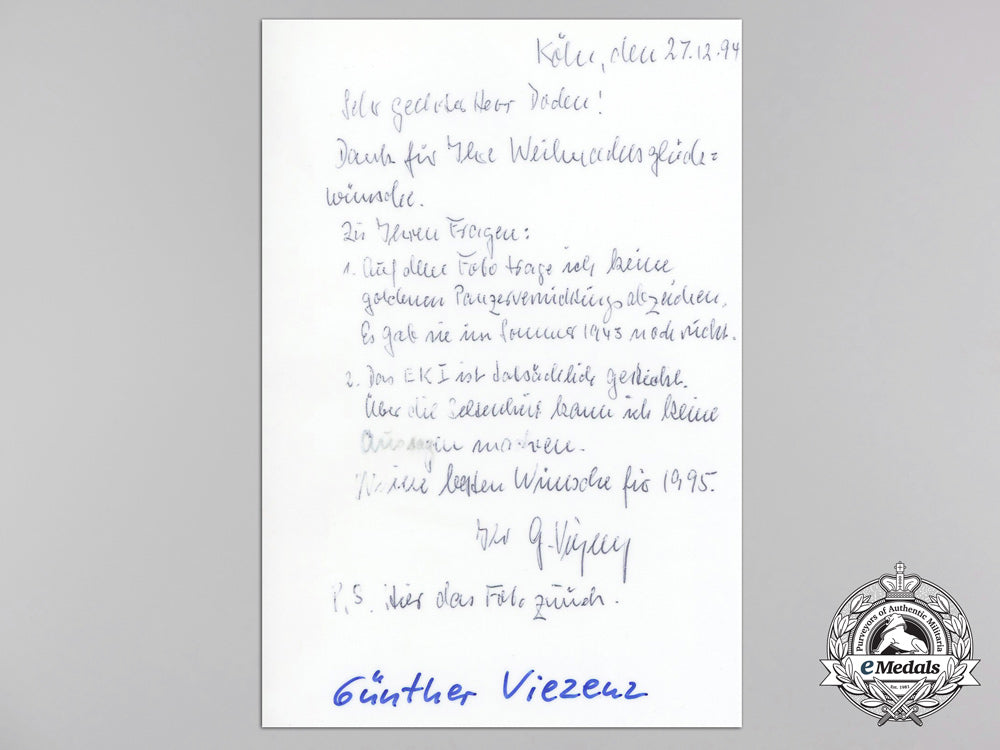 Köln, den 27.12.94
Sehr geehrter Herr Doden!
Dank für Ihre Weihnachtsglück=
wünsche.
Zu Ihren Fragen:
1. Auf dem Foto trage ich keine
goldenen Panzervernichtungsabzeichen.
Es gab sie im Sommer 1943 noch nicht.
2. Das EK I ist tatsächlich gestickt.
Über die Seltenheit kann ich keine
Aussagen machen.
Meine besten Wünsche für 1995.
Ihr G. Viezenz
P.S. Hier das Foto zurück.
Günther Viezenz
Purveyors of Authentic Militaria
eMedals
Est. 1985